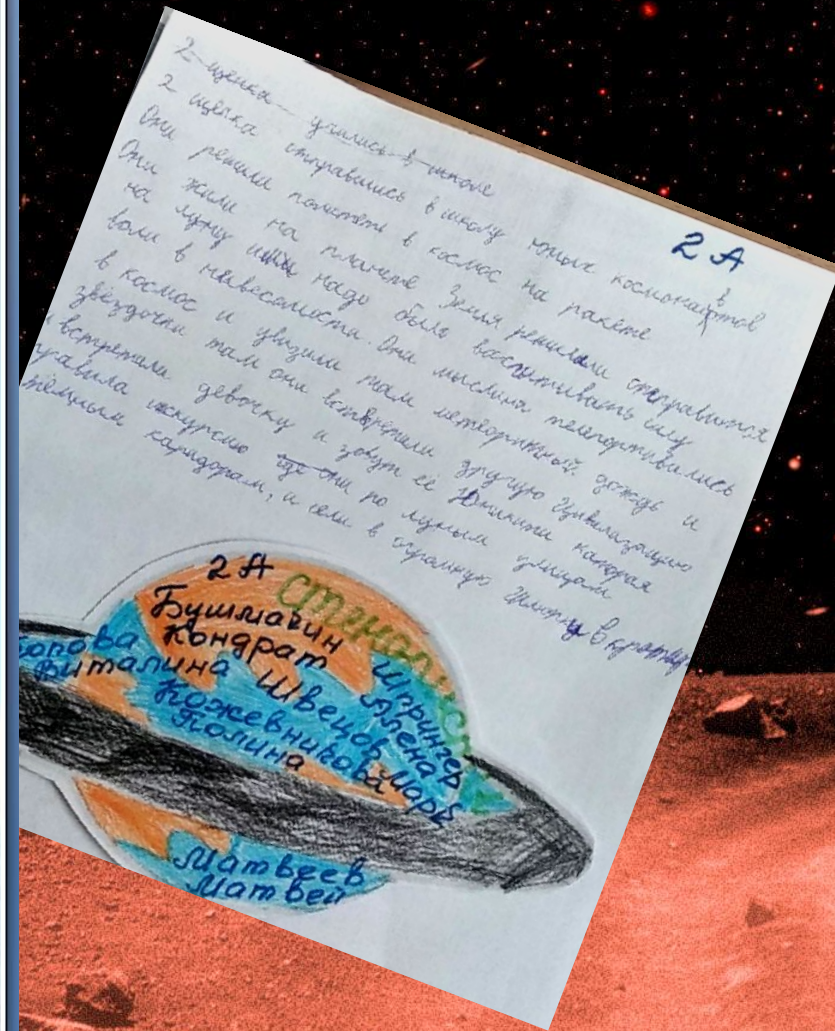 2 щенка учились в школе
2 щенка отправились в школу юных космонавтов
2 А
Они решили полететь в космос на ракете
Они жили на планете Земля решили отправится
на луну надо было воспитывать силу
воли в невесомости. Они мыслиня телепортивались
в космос и увизили там метеоритный дождь и
звёздочки там они встретили другую цивилизацию
встретили девочку и зовут её каторая
экскурсию где они по луным улицам
каридорам, и сели в огромную
2 А
Бушмагин
Кондрат
Виталина
Швецов
Марк
Кожевникова
Полина
Шпрингер
Матвеев
Матвей